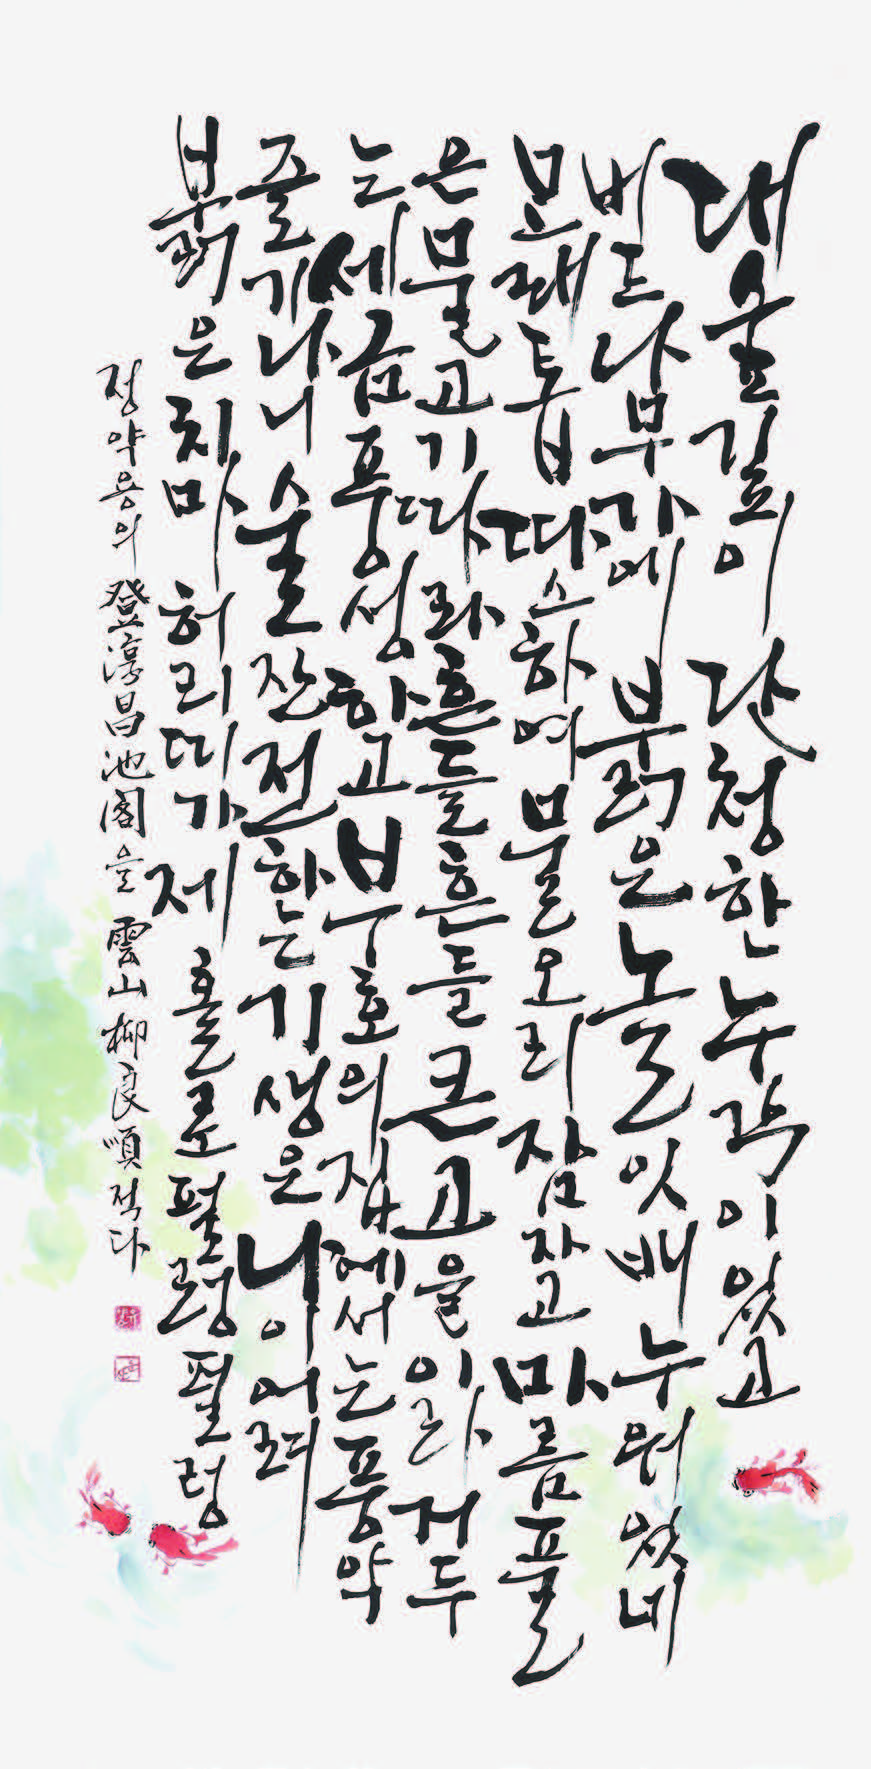 대숲길이 단청한 누각이 있고
버드나무 가에 붉은 놀잇배 누워 있네
모래톱 따스하여 물오리 잠자고 마름풀
은 물고기 따라 흔들흔들 큰 고을이라 거두
는 세금 풍성하고 부호의 집에서는 풍악
즐기나니 술잔 전하는 기생은 나이 어려
붉은 치마 허리띠가 제 홀로 펄렁펄렁
정약용의 登淳昌池閣을 雲山 柳良順 적다